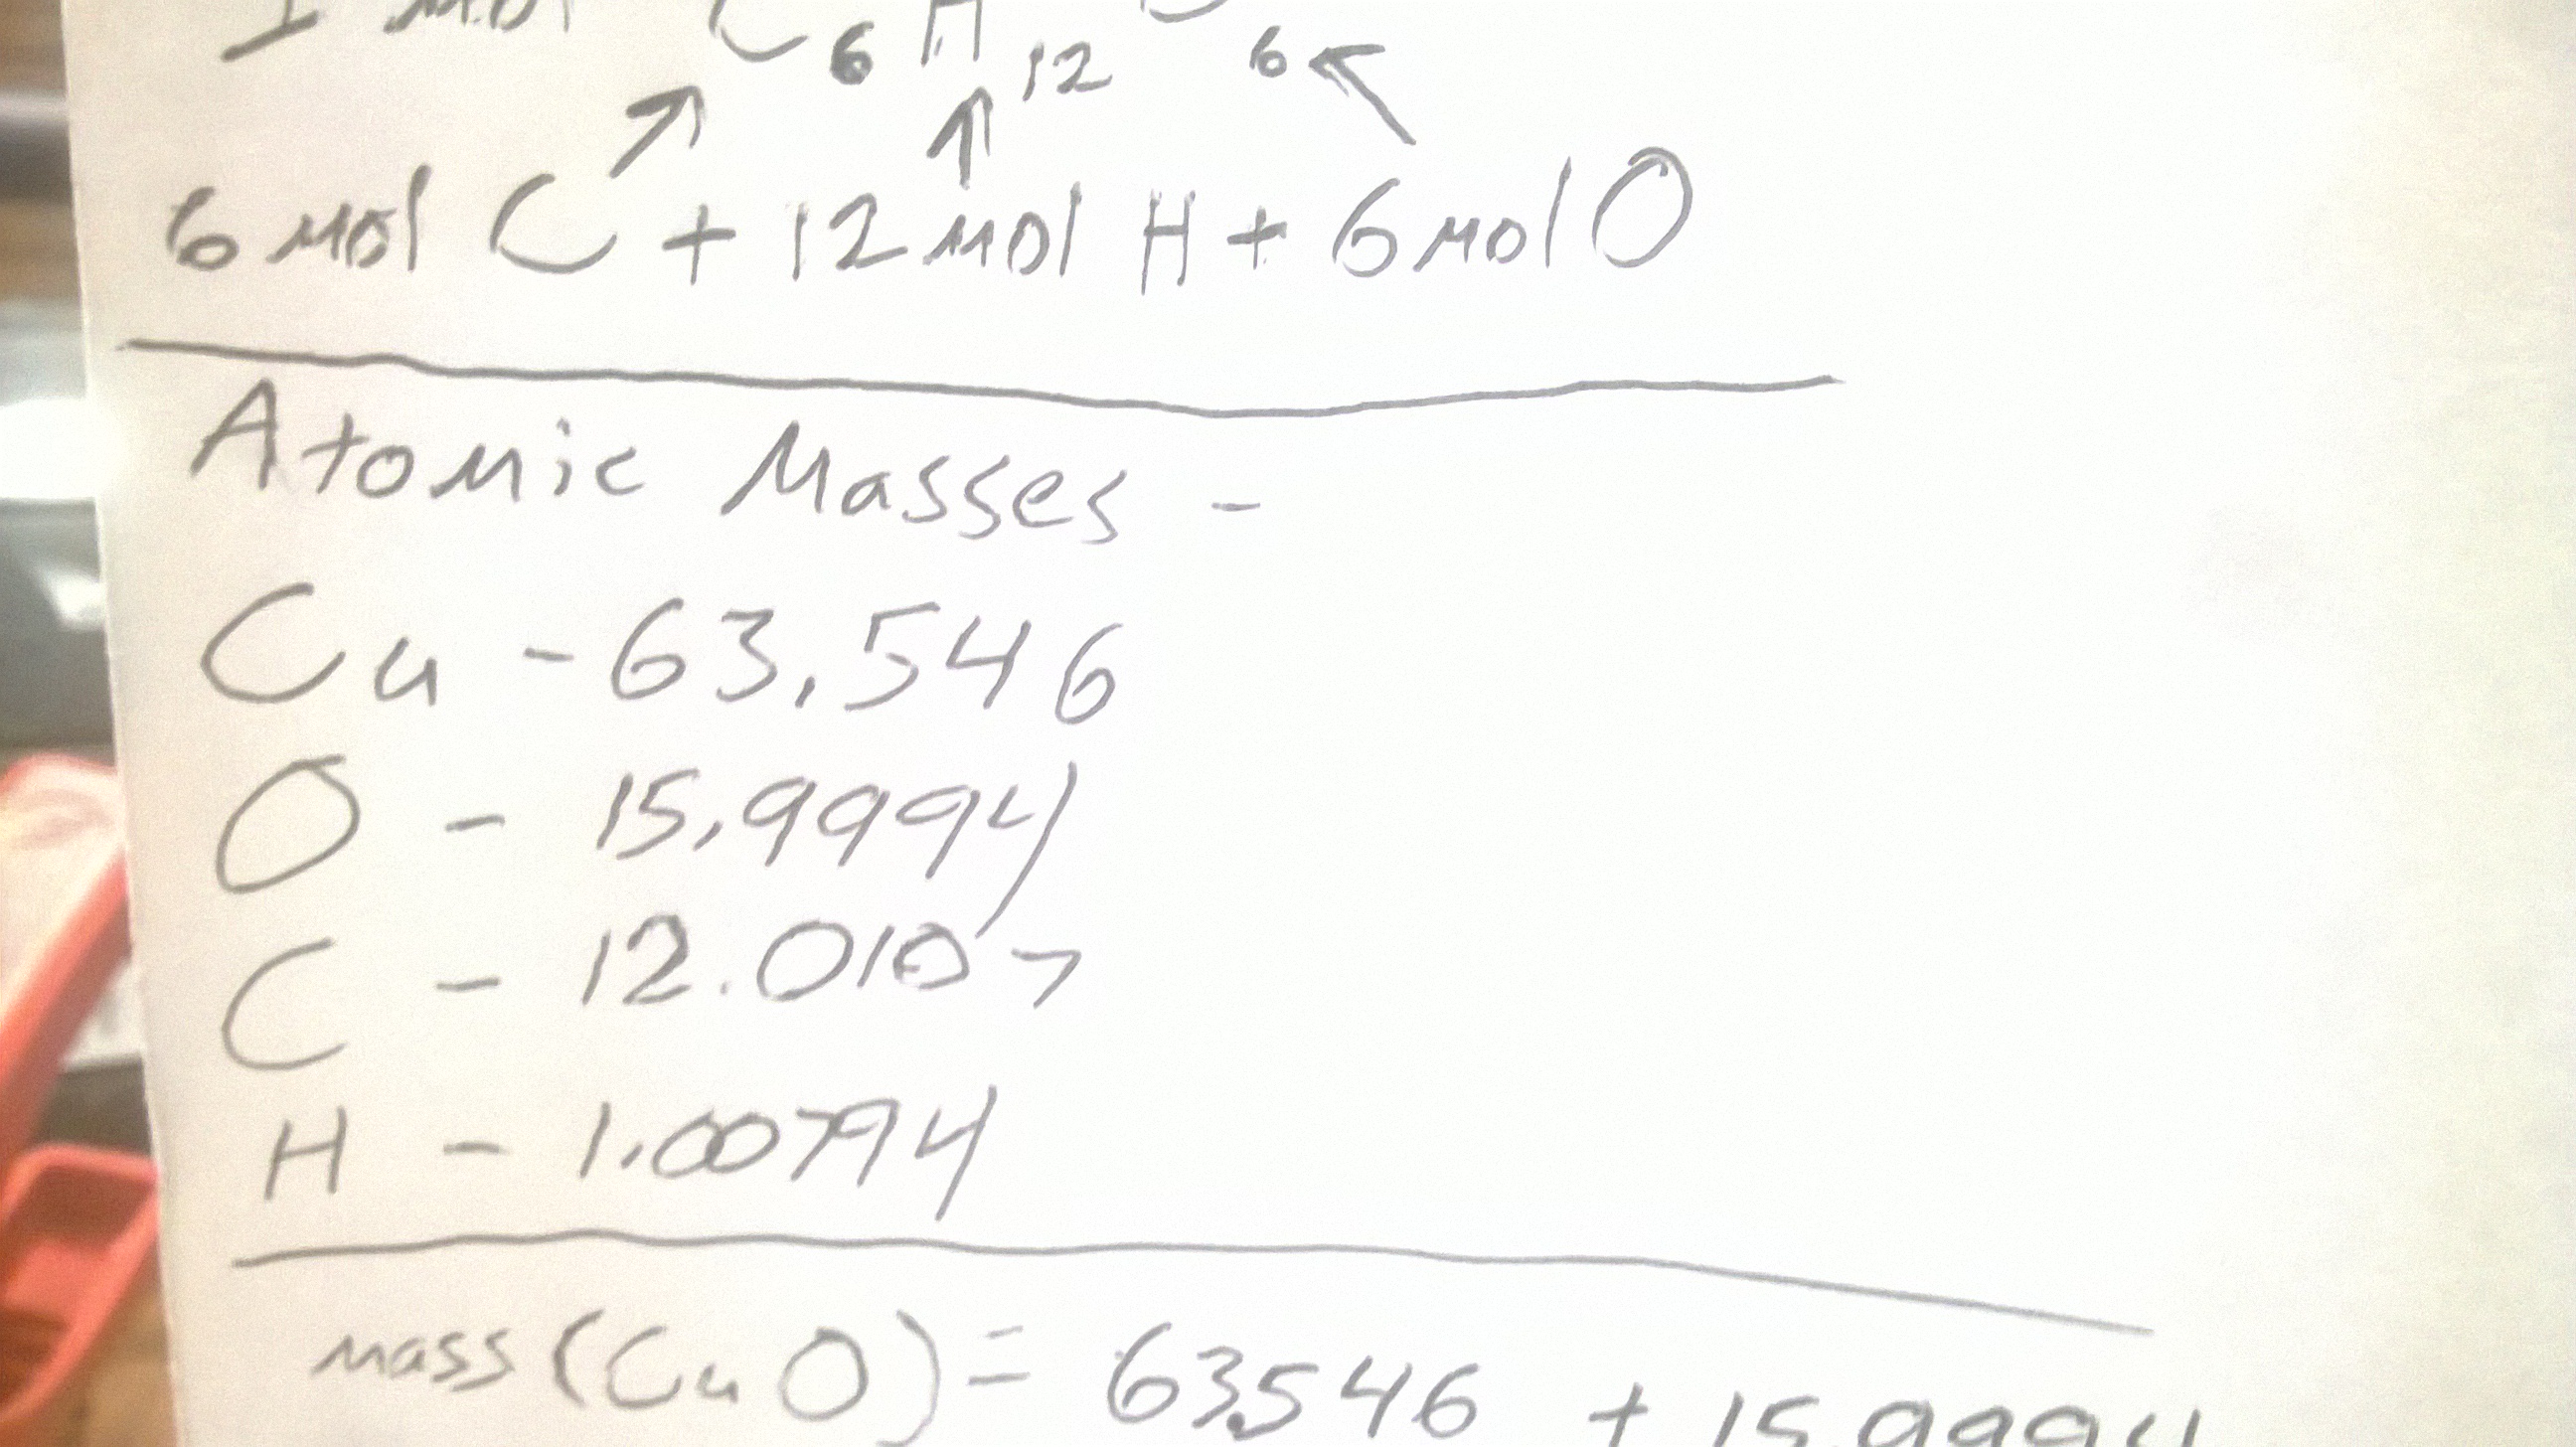 1 mol C6H12O6
6 mol C + 12 mol H + 6 mol O
Atomic Masses -
Cu - 63.546
O - 15.9994
C - 12.0107
H - 1.00794
mass (CuO) = 63.546 + 15.9994